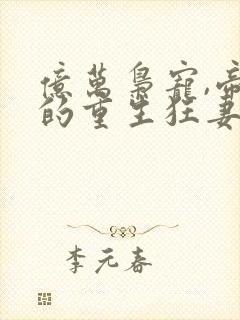 億萬梟寵,帝
的重生狂妻
李元春